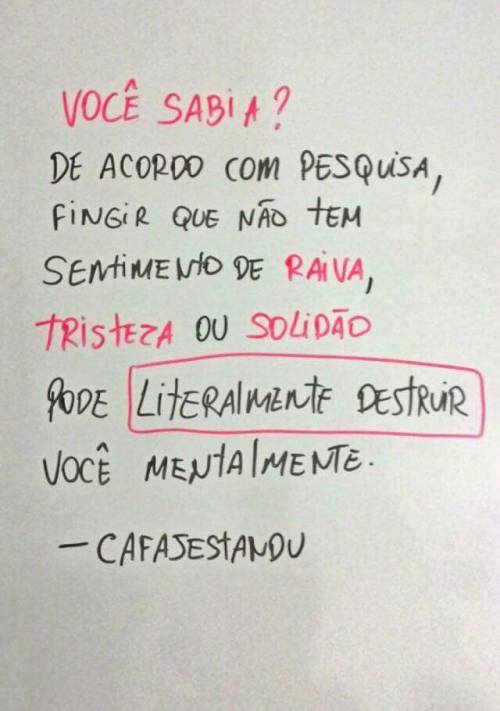 VOCÊ SABIA?
DE ACORDO COM PESQUISA,
FINGIR QUE NÃO TEM
SENTIMENTO DE RAIVA,
TRISTEZA OU SOLIDÃO
PODE LITERALMENTE DESTRUIR
VOCÊ MENTALMENTE.
— CAFAJESTANDU